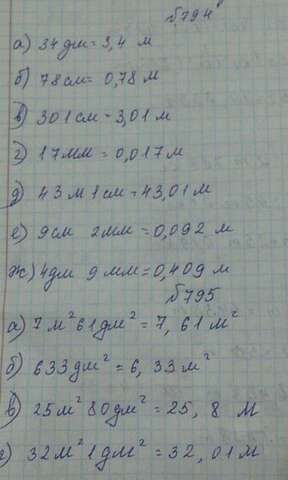 №794
а) 34дм = 3,4 м
б) 78см = 0,78 м
в) 301см = 3,01 м
г) 17мм = 0,017м
д) 43м 1см = 43,01м
е) 9см 2мм = 0,092 м
ж) 4дм 9мм = 0,409 м
№795
а) 7м² 61дм² = 7,61м²
б) 633дм² = 6,33м²
в) 25м² 80дм² = 25,8 м
г) 32м² 1дм² = 32,01м